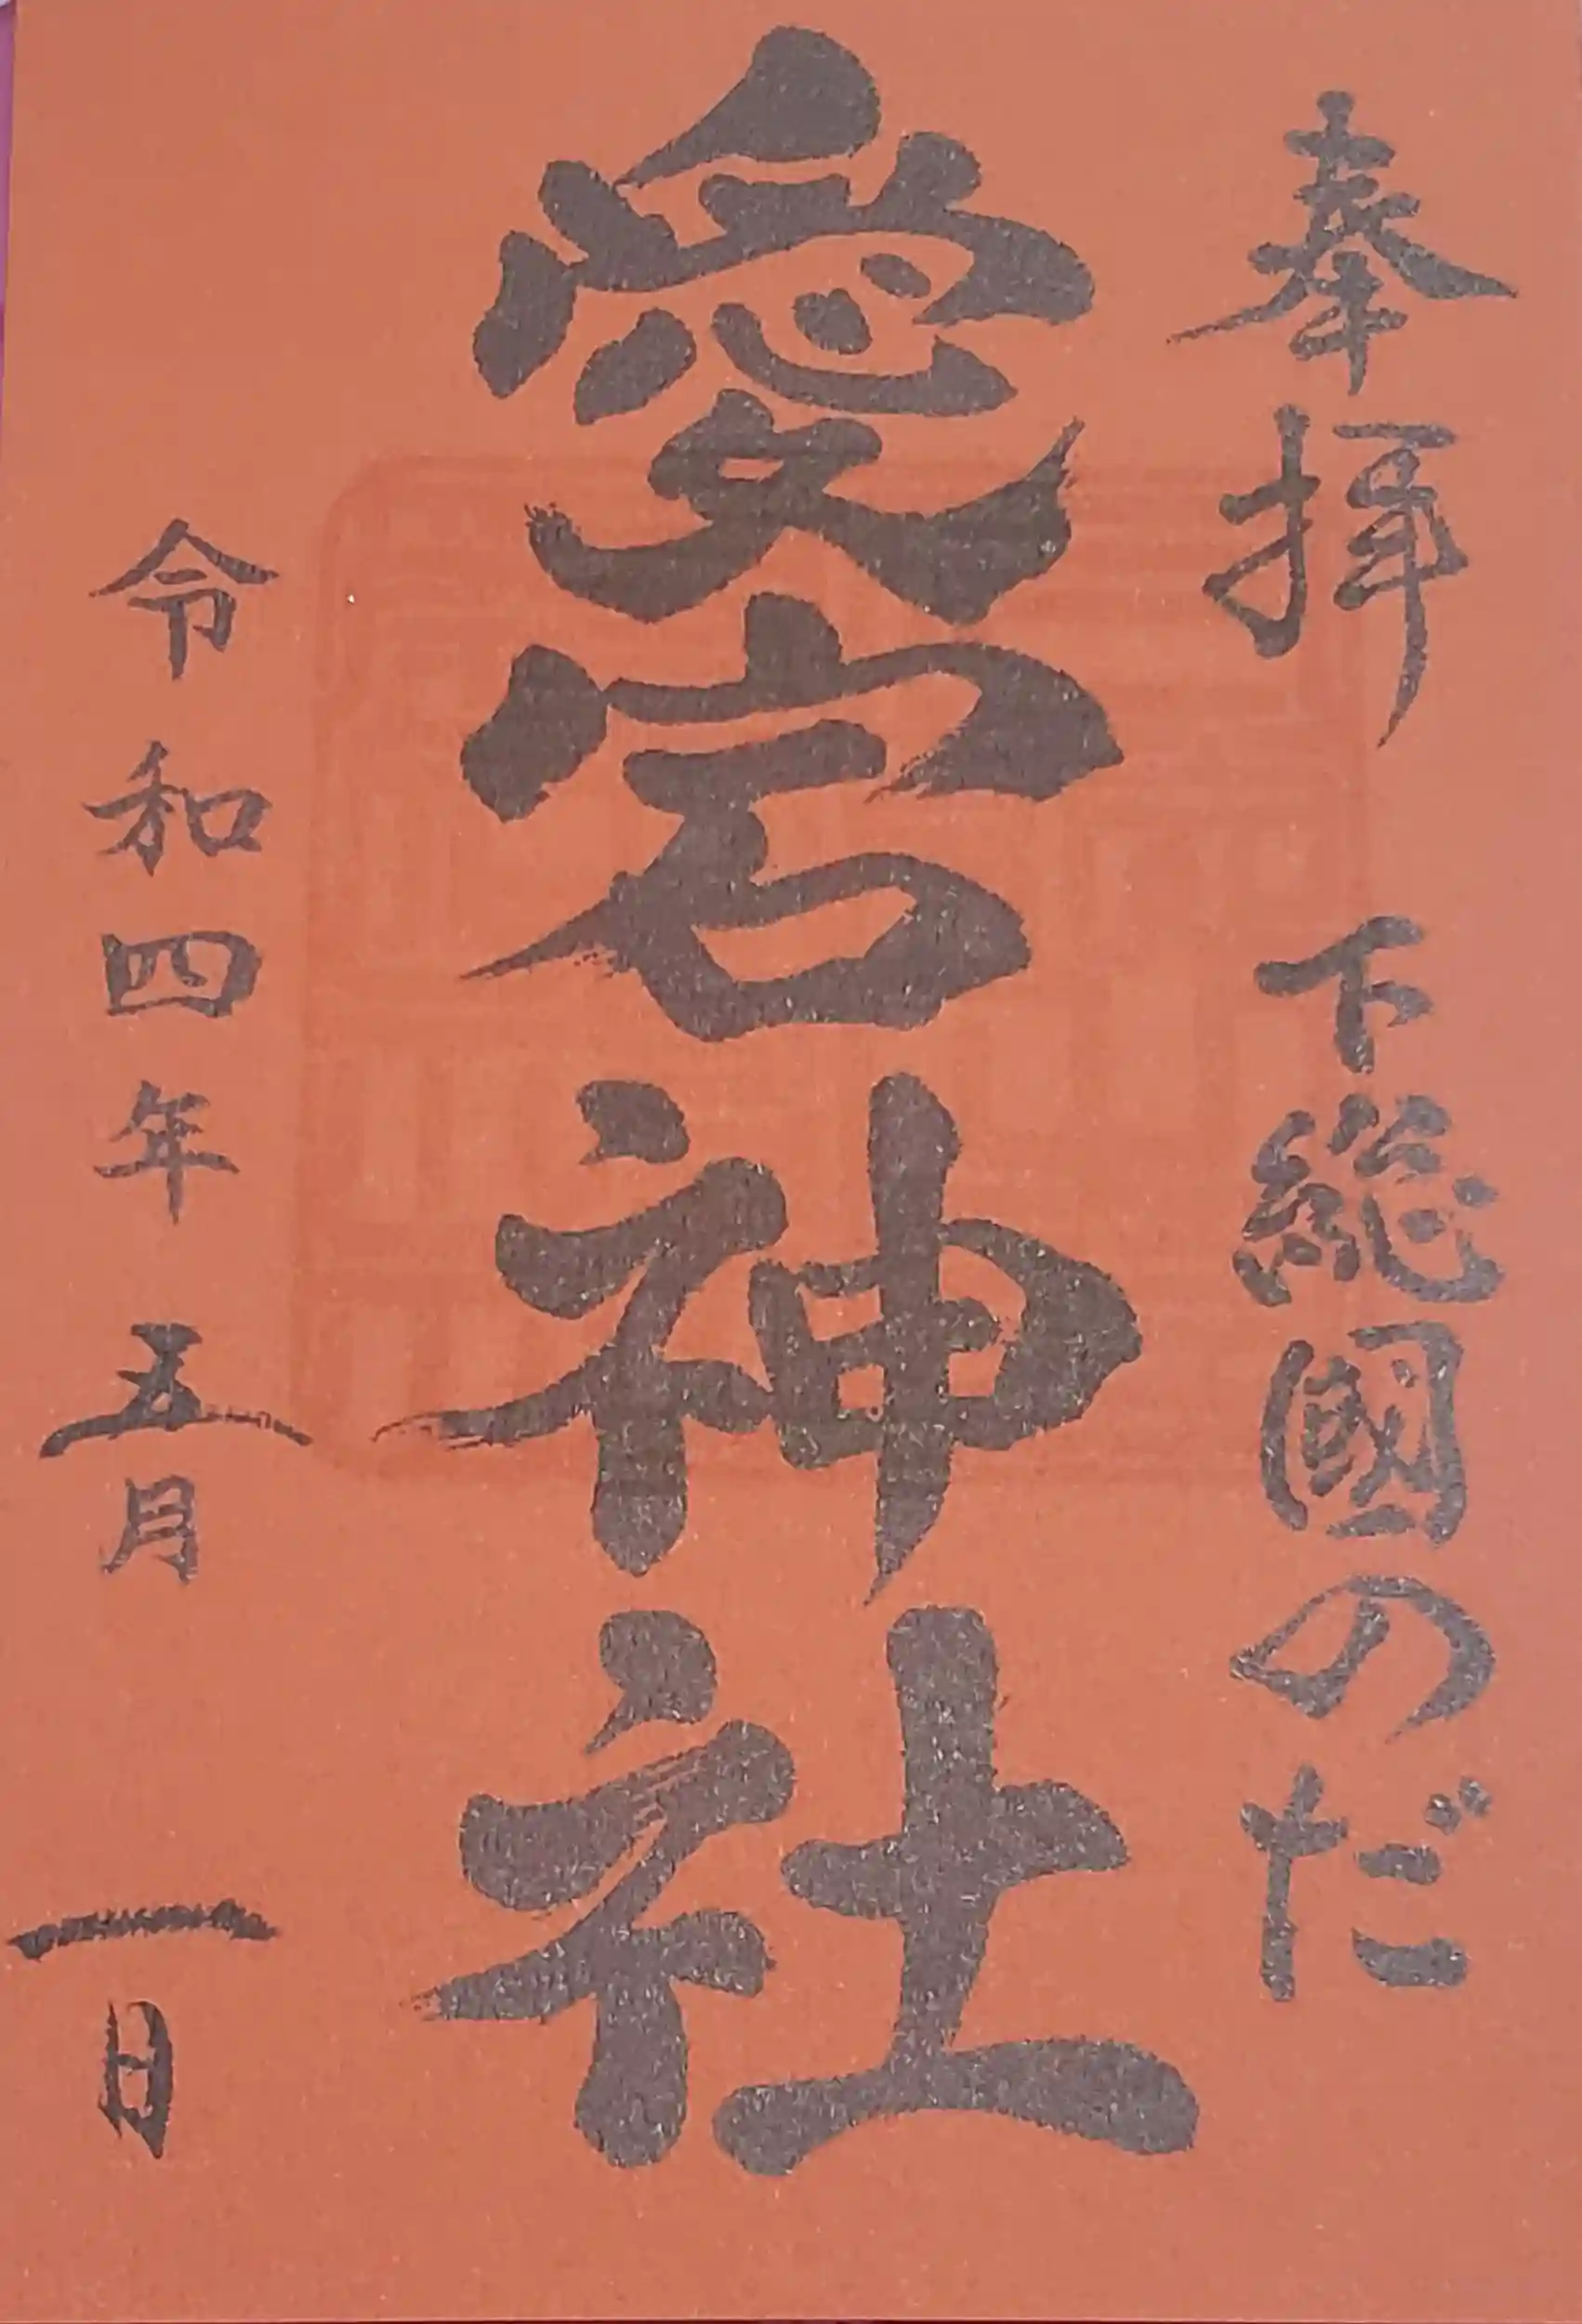 奉拝 下総國のだ
愛宕神社
令和四年 五月 一日